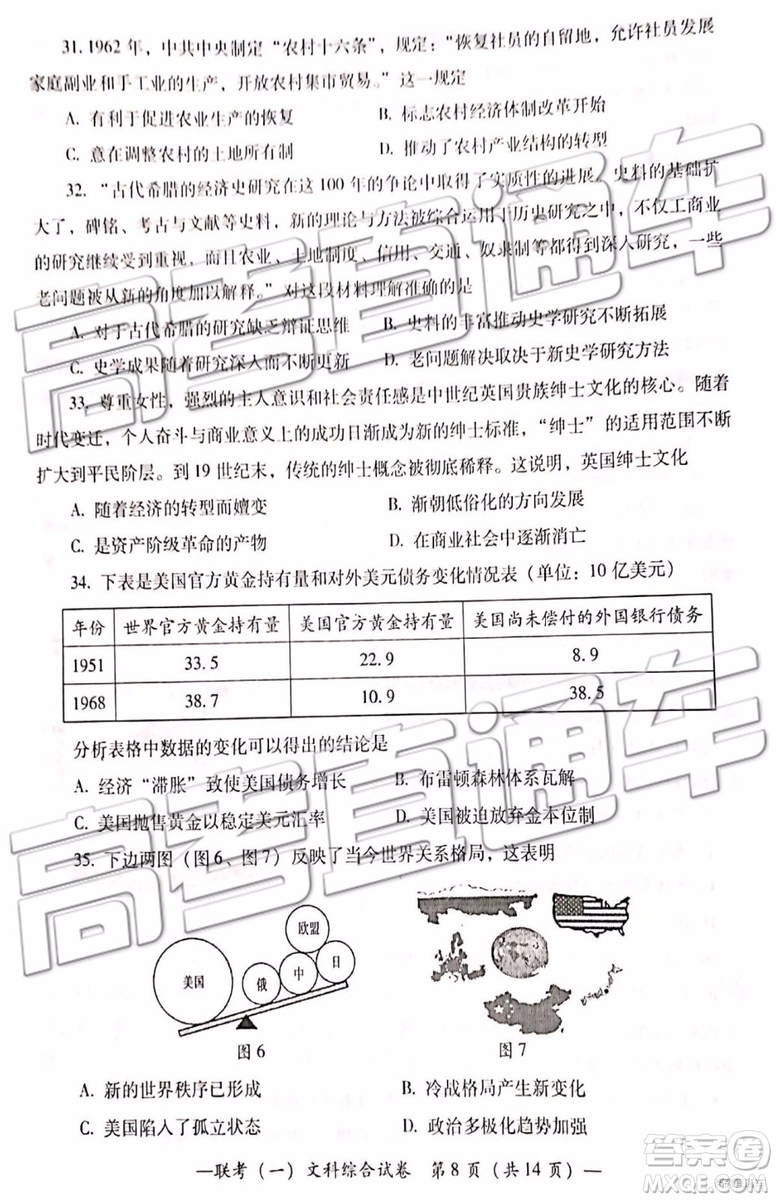 31. 1962 年，中共中央制定“农村十六条”，规定：“恢复社员的自留地，允许社员发展
家庭副业和手工业的生产，开放农村集市贸易。”这一规定
A. 有利于促进农业生产的恢复 B. 标志农村经济体制改革开始
C. 意在调整农村的土地所有制 D. 推动了农村产业结构的转型
32. “古代希腊的经济史研究在这 100 年的争论中取得了实质性的进展。史料的基础扩
大了，碑铭、考古与文献等史料，新的理论与方法被综合运用于历史研究之中，不仅工商业
的研究继续受到重视，而且农业、土地制度、信用、交通、奴隶制等都得到深入研究，一些
老问题被从新的角度加以解释。”对这段材料理解准确的是
A. 对于古代希腊的研究缺乏辩证思维 B. 史料的丰富推动史学研究不断拓展
C. 史学成果随着研究深入而不断更新 D. 老问题解决取决于新史学研究方法
33. 尊重女性，强烈的主人意识和社会责任感是中世纪英国贵族绅士文化的核心。随着
时代变迁，个人奋斗与商业意义上的成功日渐成为新的绅士标准，“绅士”的适用范围不断
扩大到平民阶层。到 19 世纪末，传统的绅士概念被彻底稀释。这说明，英国绅士文化
A. 随着经济的转型而嬗变 B. 渐朝低俗化的方向发展
C. 是资产阶级革命的产物 D. 在商业社会中逐渐消亡
34. 下表是美国官方黄金持有量和对外美元债务变化情况表（单位：10 亿美元）
年份 世界官方黄金持有量 美国官方黄金持有量 美国尚未偿付的外国银行债务
1951 33.5 22.9 8.9
1968 38.7 10.9 38.5
分析表格中数据的变化可以得出的结论是
A. 经济“滞胀”致使美国债务增长 B. 布雷顿森林体系瓦解
C. 美国抛售黄金以稳定美元汇率 D. 美国被迫放弃金本位制
35. 下边两图（图 6、图 7）反映了当今世界关系格局，这表明
美国 俄 中 日 欧盟
图 6 图 7
A. 新的世界秩序已形成 B. 冷战格局产生新变化
C. 美国陷入了孤立状态 D. 政治多极化趋势加强
—联考（一）文科综合试卷 第 8 页（共 14 页）—
高考直通车
高考直通车
答案圈
MXQE.COM